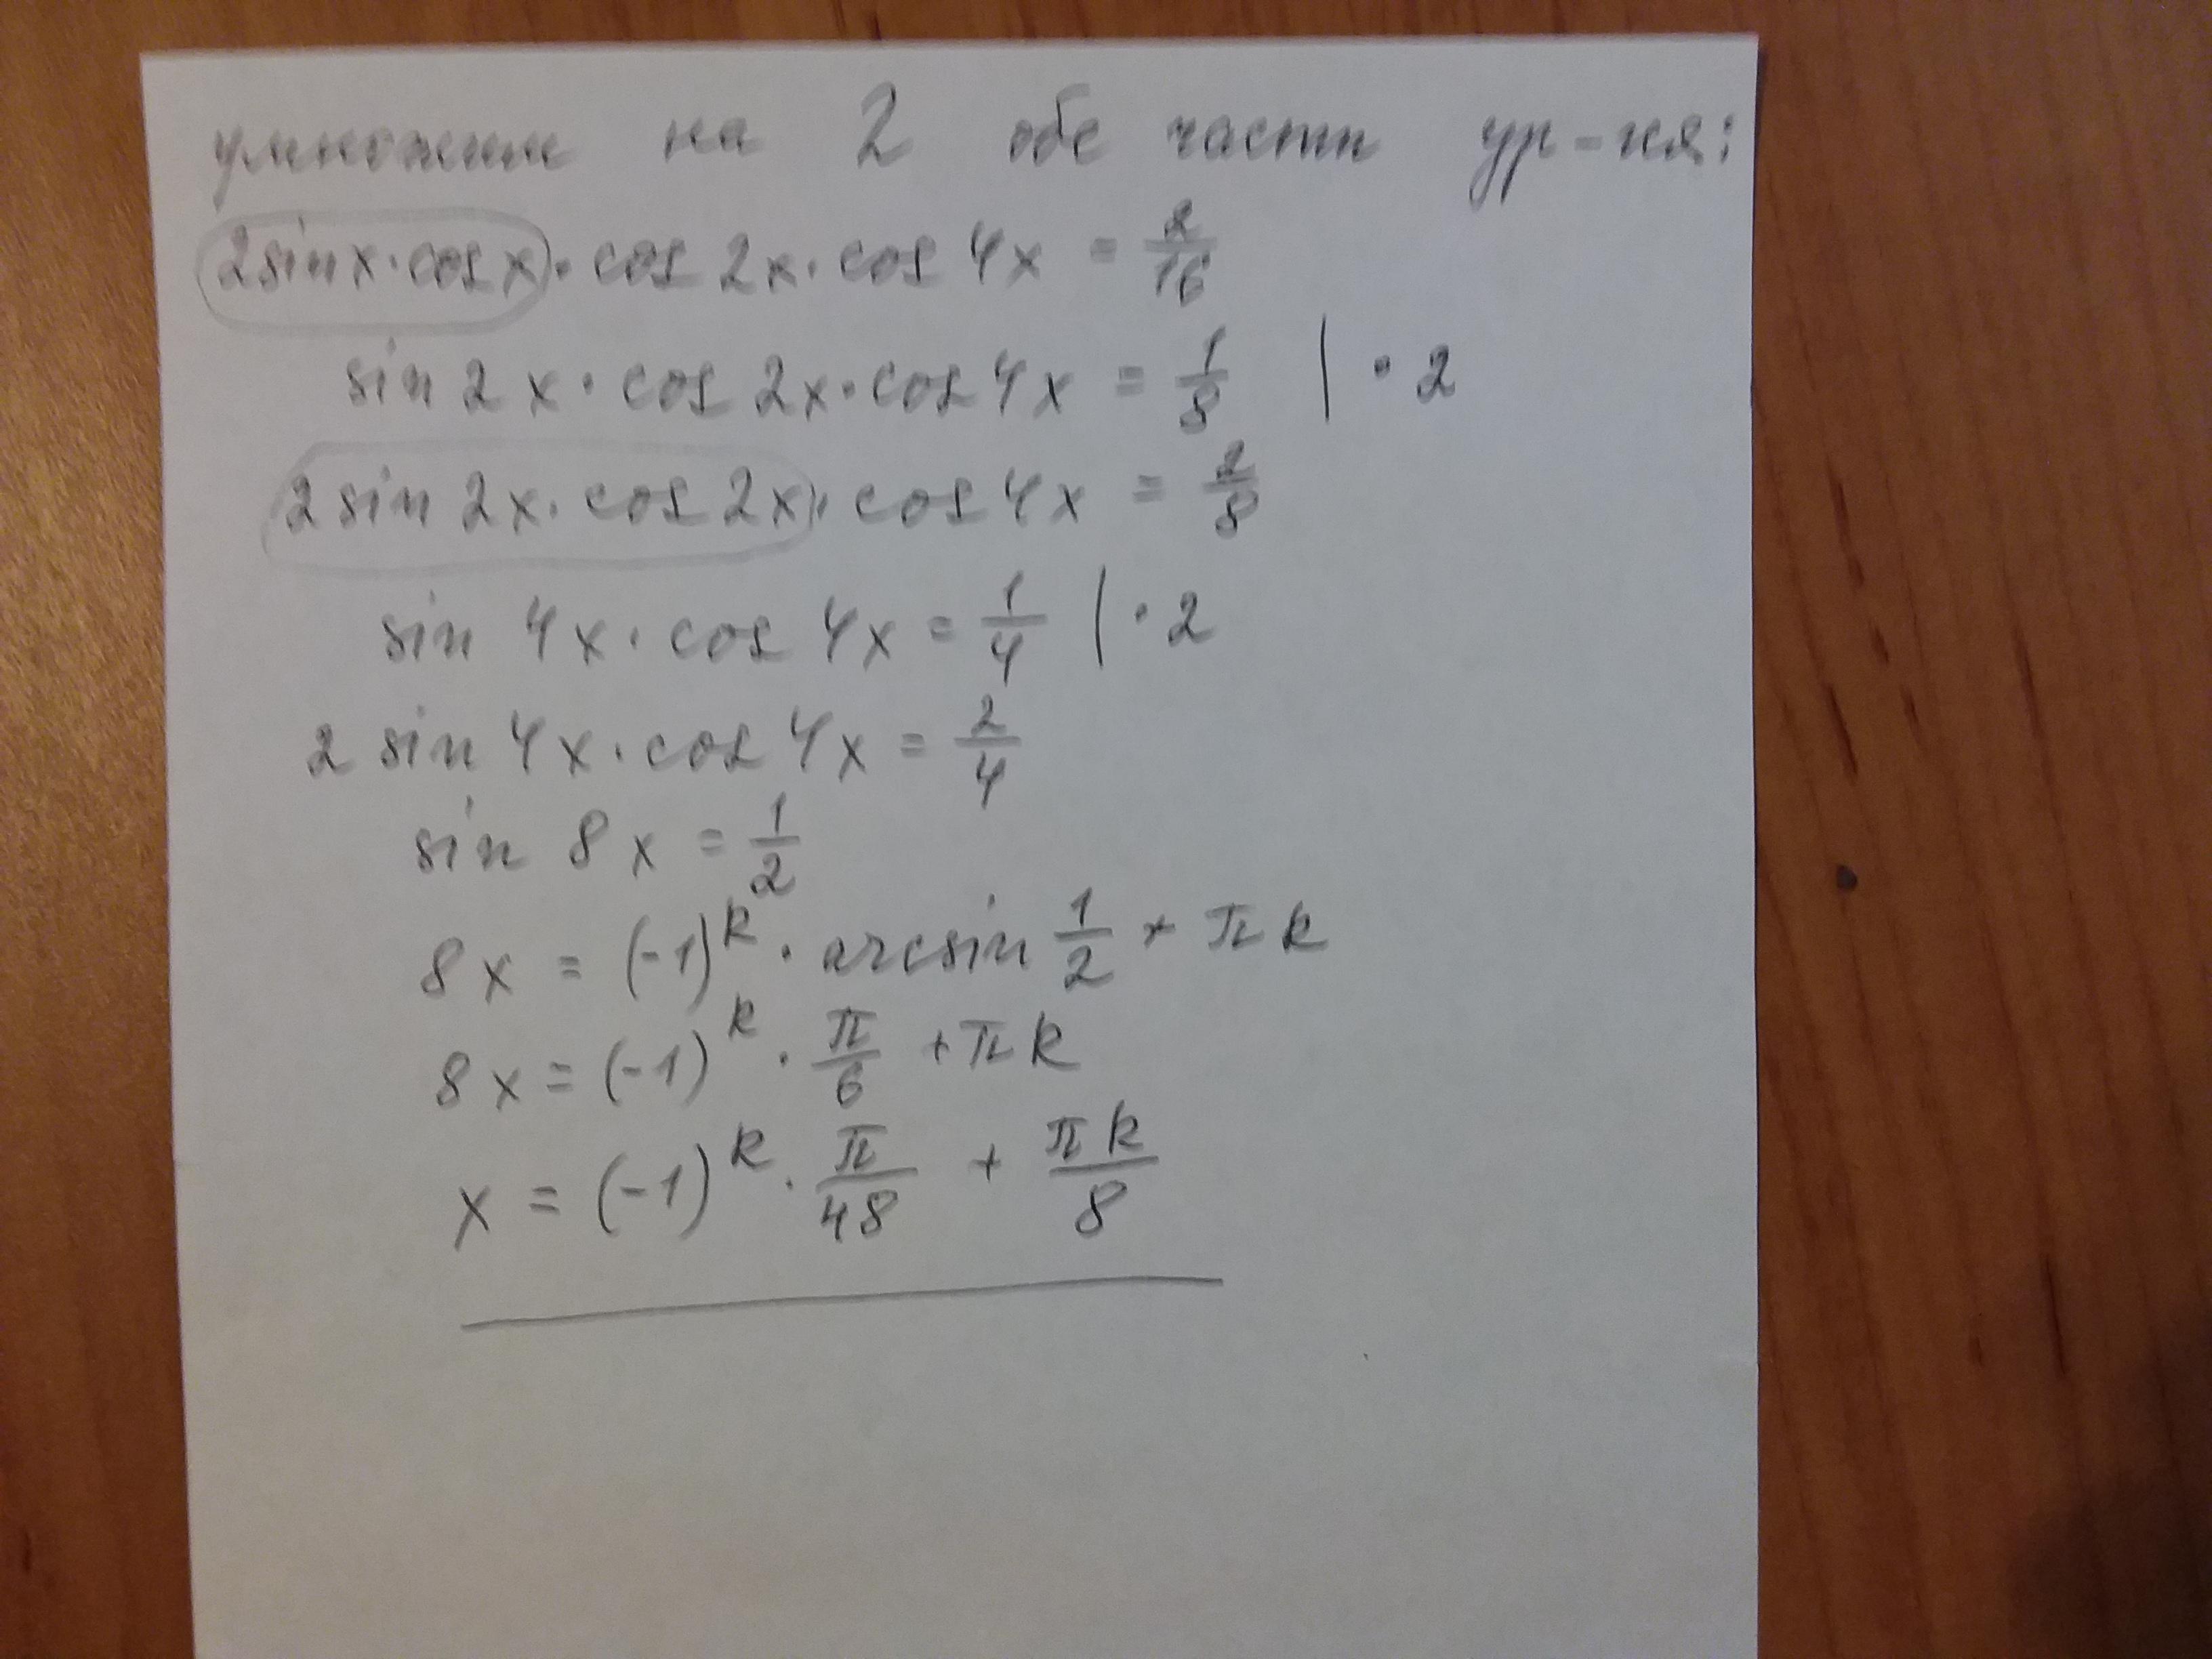 умножим на 2 обе части ур-ия:
2sinx·cosx·cos 2x·cos 4x = 2/16
sin 2x·cos 2x·cos 4x = 1/8 | · 2
2 sin 2x·cos 2x·cos 4x = 2/8
sin 4x·cos 4x = 1/4 | · 2
2 sin 4x·cos 4x = 2/4
sin 8x = 1/2
8x = (-1)^k · arcsin 1/2 + πk
8x = (-1)^k · π/6 + πk
x = (-1)^k · π/48 + πk/8